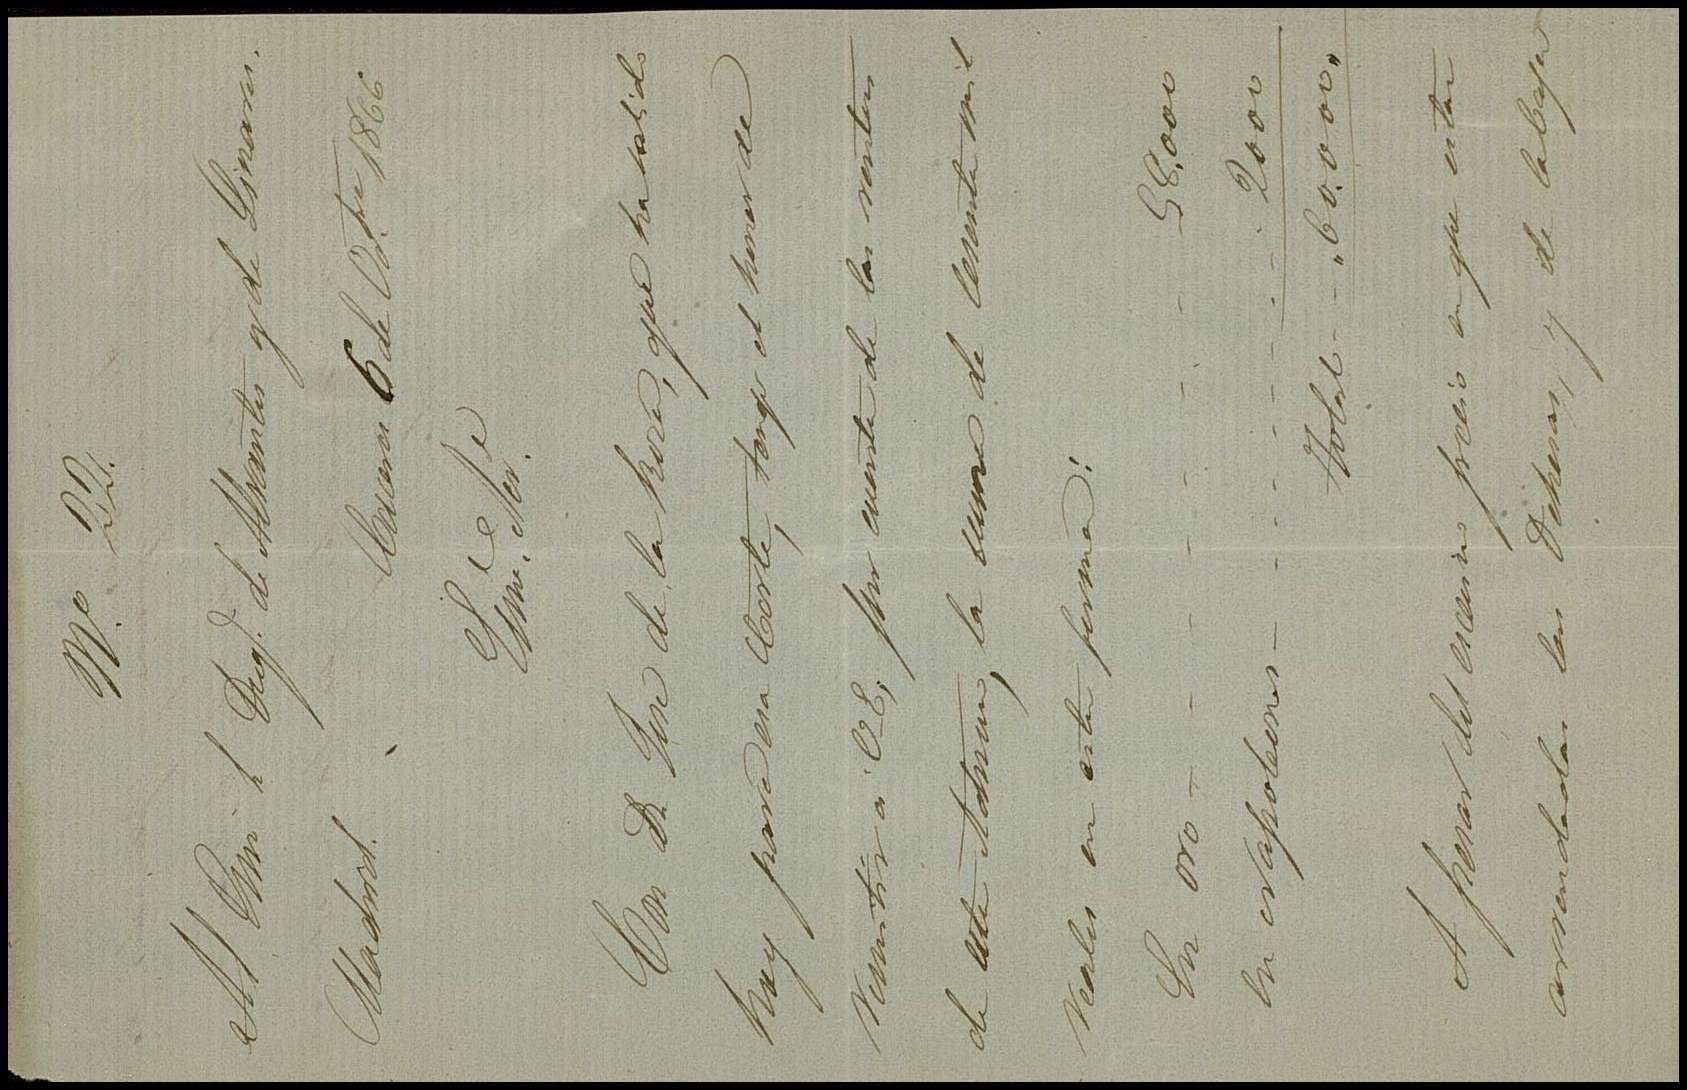 N.º 22.
Al Exmo Sr Duq.e de Abrantes y de Linares.
Madrid.
Cáceres 6 de Oct.bre 1866
Exmo. Señor.
Con D. José de la Riva, que ha salido
hoy para esa Corte, tengo el honor de
remitir á V.E, por cuenta de las rentas
de esta Admon, la suma de sesenta mil
reales en esta forma:
En oro - - - - - - 58,000
En Napoleones - - - - - - 2000
Total - - "60.000"
A pesar del escaso precio en que estan
arrendadas las Dehesas, y de la baja